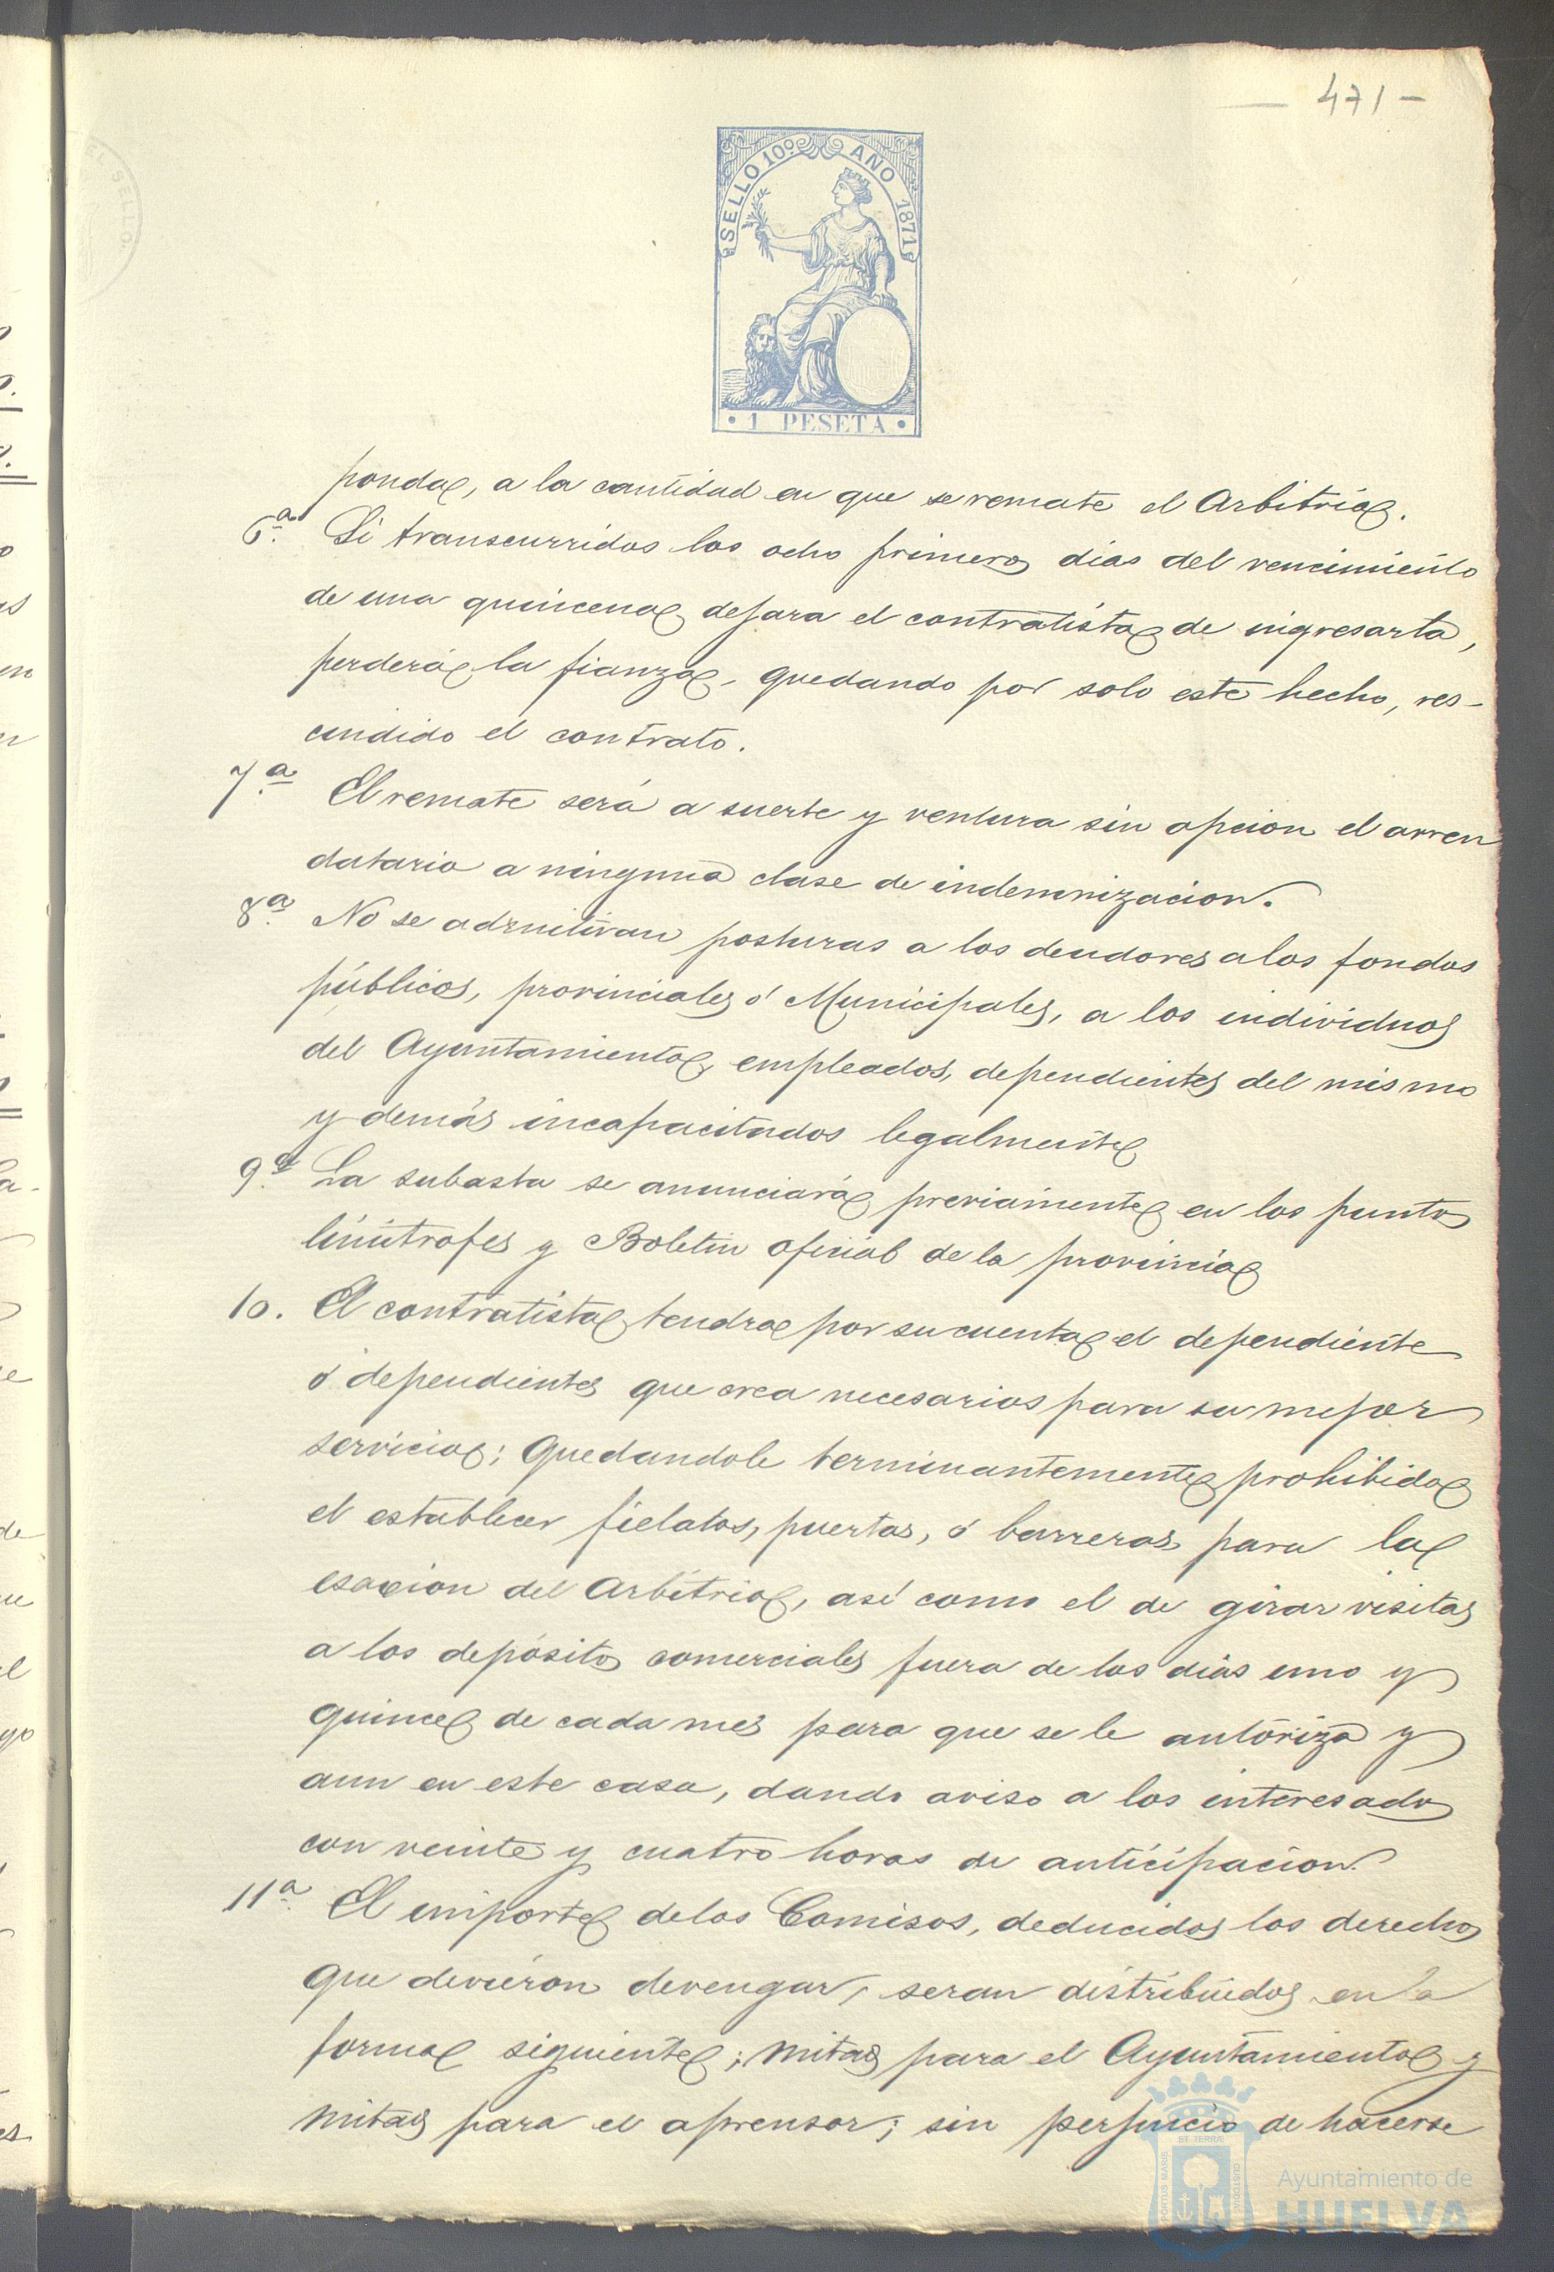 - 471 -
SELLO 10º AÑO 1871
· 1 PESETA ·
SELLO
ponda, a la cantidad en que se remate el Arbitrio.
6.ª Si transcurridos los ocho primeros dias del vencimiento
de una quincena dejara el contratista de ingresarla,
perderá la fianza, quedando por solo este hecho, res-
cindido el contrato.
7.ª El remate será a suerte y ventura sin opcion el arren
datario a ninguna clase de indemnizacion.
8.ª No se admitiran posturas a los deudores a los fondos
públicos, provinciales ó Municipales, a los individuos
del Ayuntamiento, empleados, dependientes del mismo
y demás incapacitados legalmente
9.ª La subasta se anunciará previamente en los puntos
limitrofes y Boletin oficial de la provincia
10. El contratista tendra por su cuenta el dependiente
ó dependientes que crea necesarios para su mejor
servicio; quedandole terminantemente prohibido
el establecer fielatos, puertas, ó barreras para la
esaccion del Arbitrio, asi como el de girar visitas
a los depósitos comerciales fuera de los dias uno y
quince de cada mes para que se le autoriza y
aun en este caso, dando aviso a los interesados
con veinte y cuatro horas de anticipacion.
11.ª El importe de los Comisos, deducidos los derechos
que devieron devengar, seran distribuidos en la
forma siguiente; mitad para el Ayuntamiento y
mitad para el aprensor; sin perjuicio de hacerse
Ayuntamiento de
HUELVA